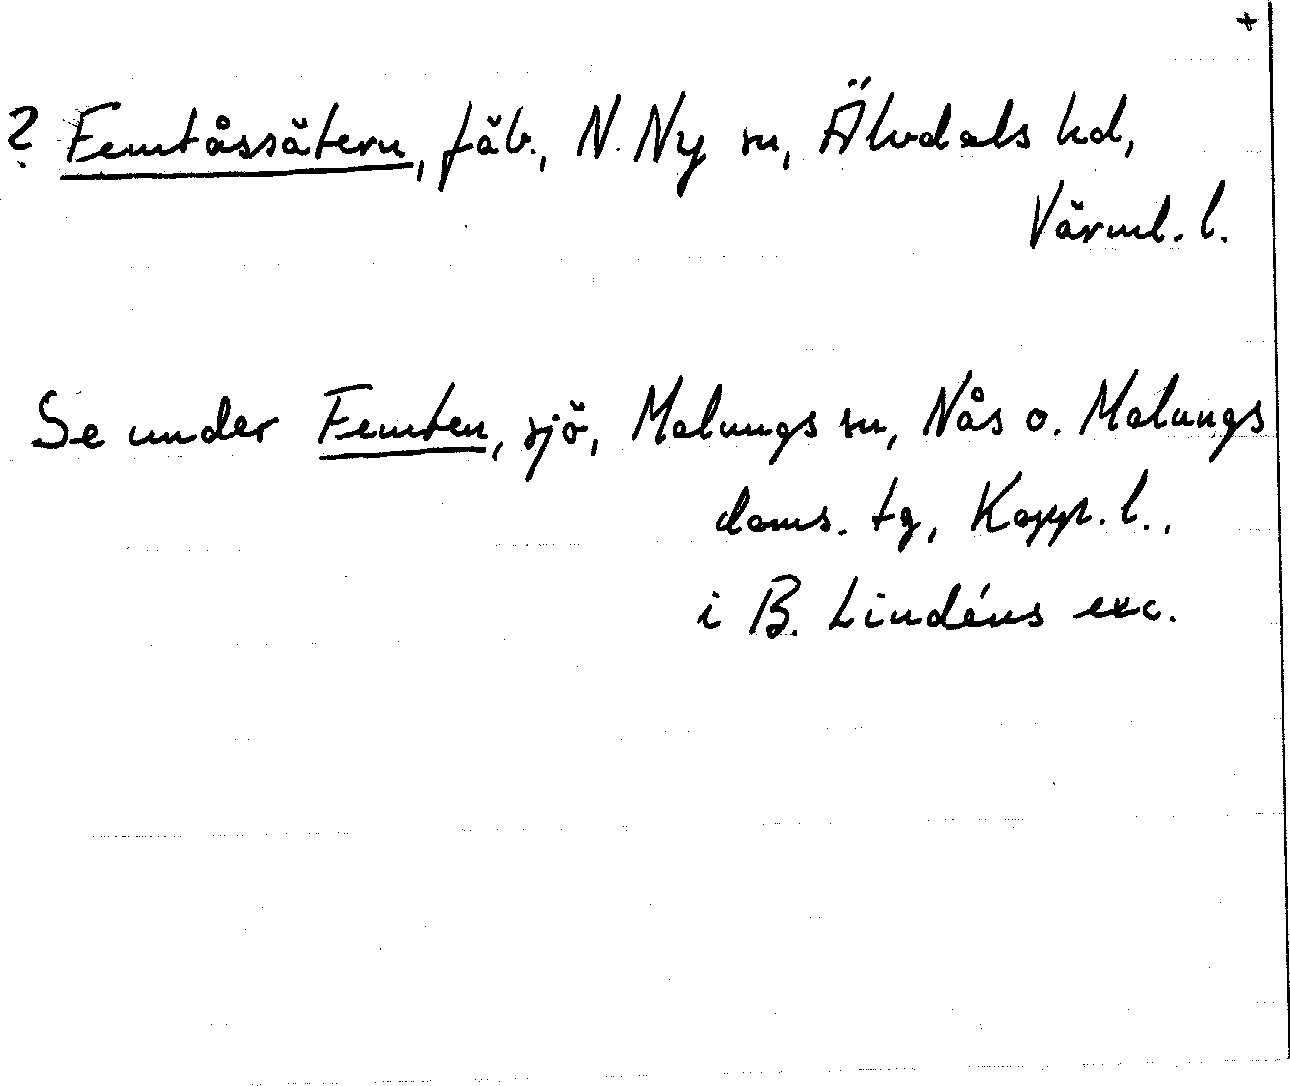 +
? Femtåssätern, fäb., N. Ny sn, Älvdals hd,
Värml. l.
Se under Femten, sjö, Malungs sn, Nås o. Malungs
doms. tg, Kopp. l.,
i B. Lindéns exc.